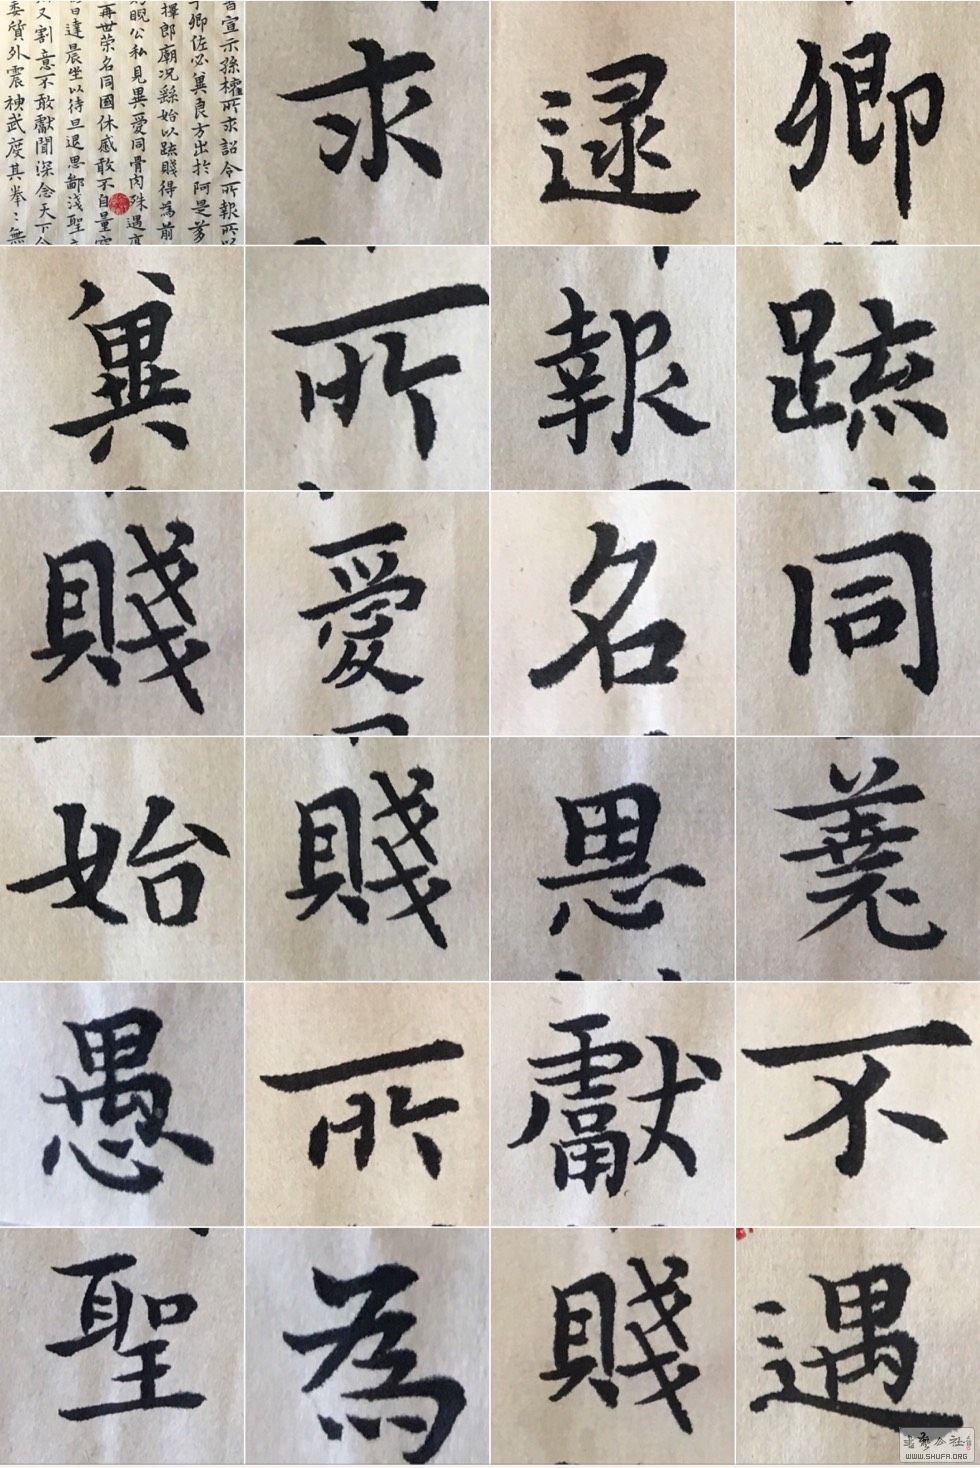 宣示孫權所求詔令所報所以
卿佐必兾良方出於阿是芻
擇郎廟况繇始以疏賤得為前
貺公私見異愛同骨肉殊遇
再世榮名同國休慼敢不自量
達晨坐以待旦退思鄙淺聖
又割意不敢獻聞深念天下
委質外震神武度其拳:無
求 逮 卿
兾 所 報 疏
賤 愛 名 同
始 賤 思 蕘
愚 所 獻 不
聖 為 賤 遇
WWW.SHUFA.ORG